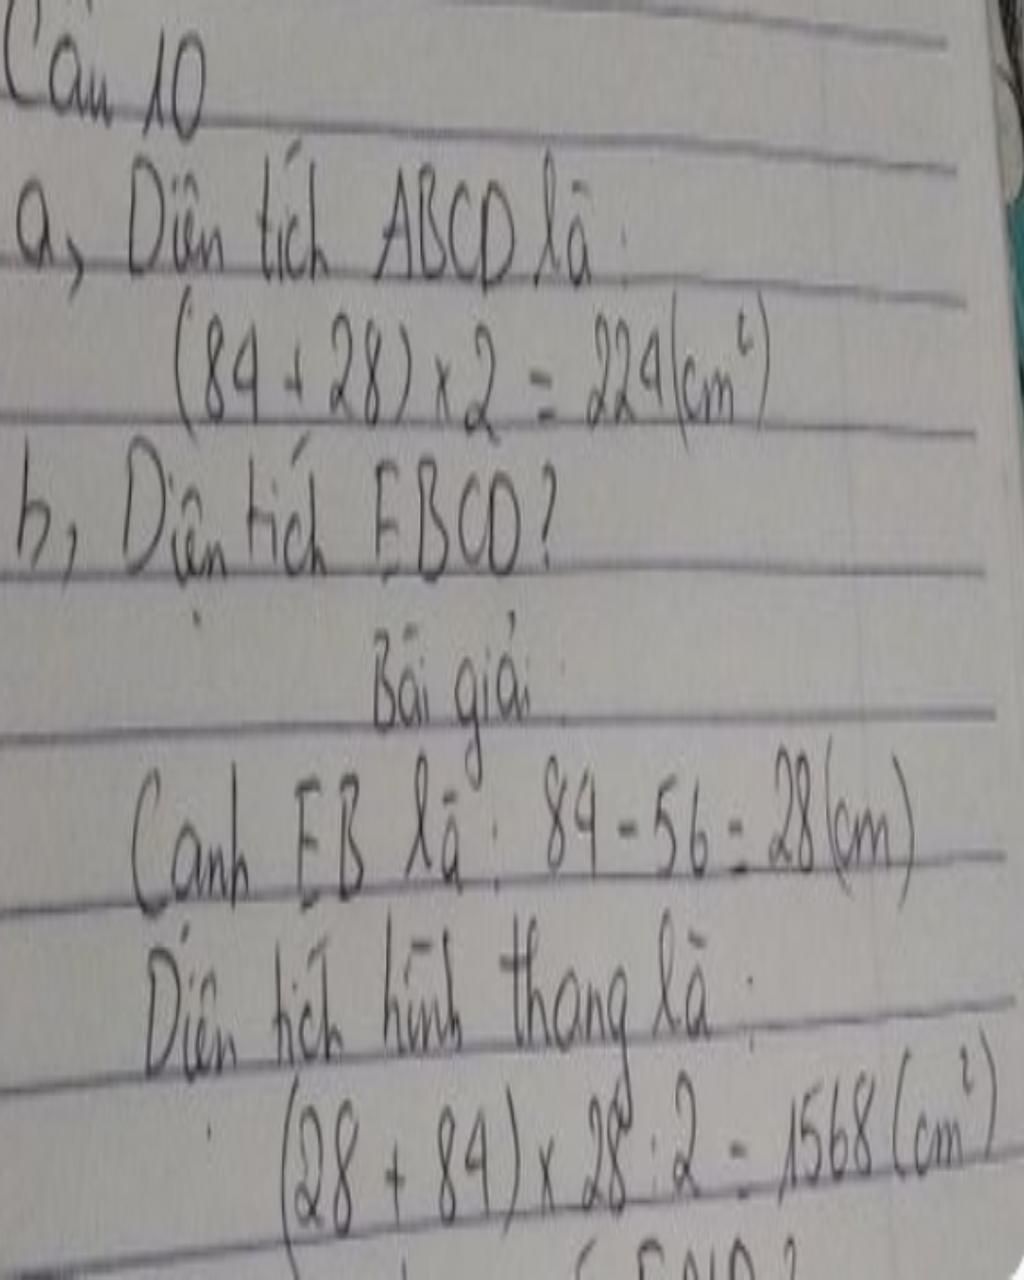 Câu 10
a, Diện tích ABCD là:
(84 + 28) x 2 = 224 (cm²)
b, Diện tích EBCD?
Bài giải:
Cạnh EB là: 84 - 56 = 28 (cm)
Diện tích hình thang là:
(28 + 84) x 28 : 2 = 1568 (cm²)